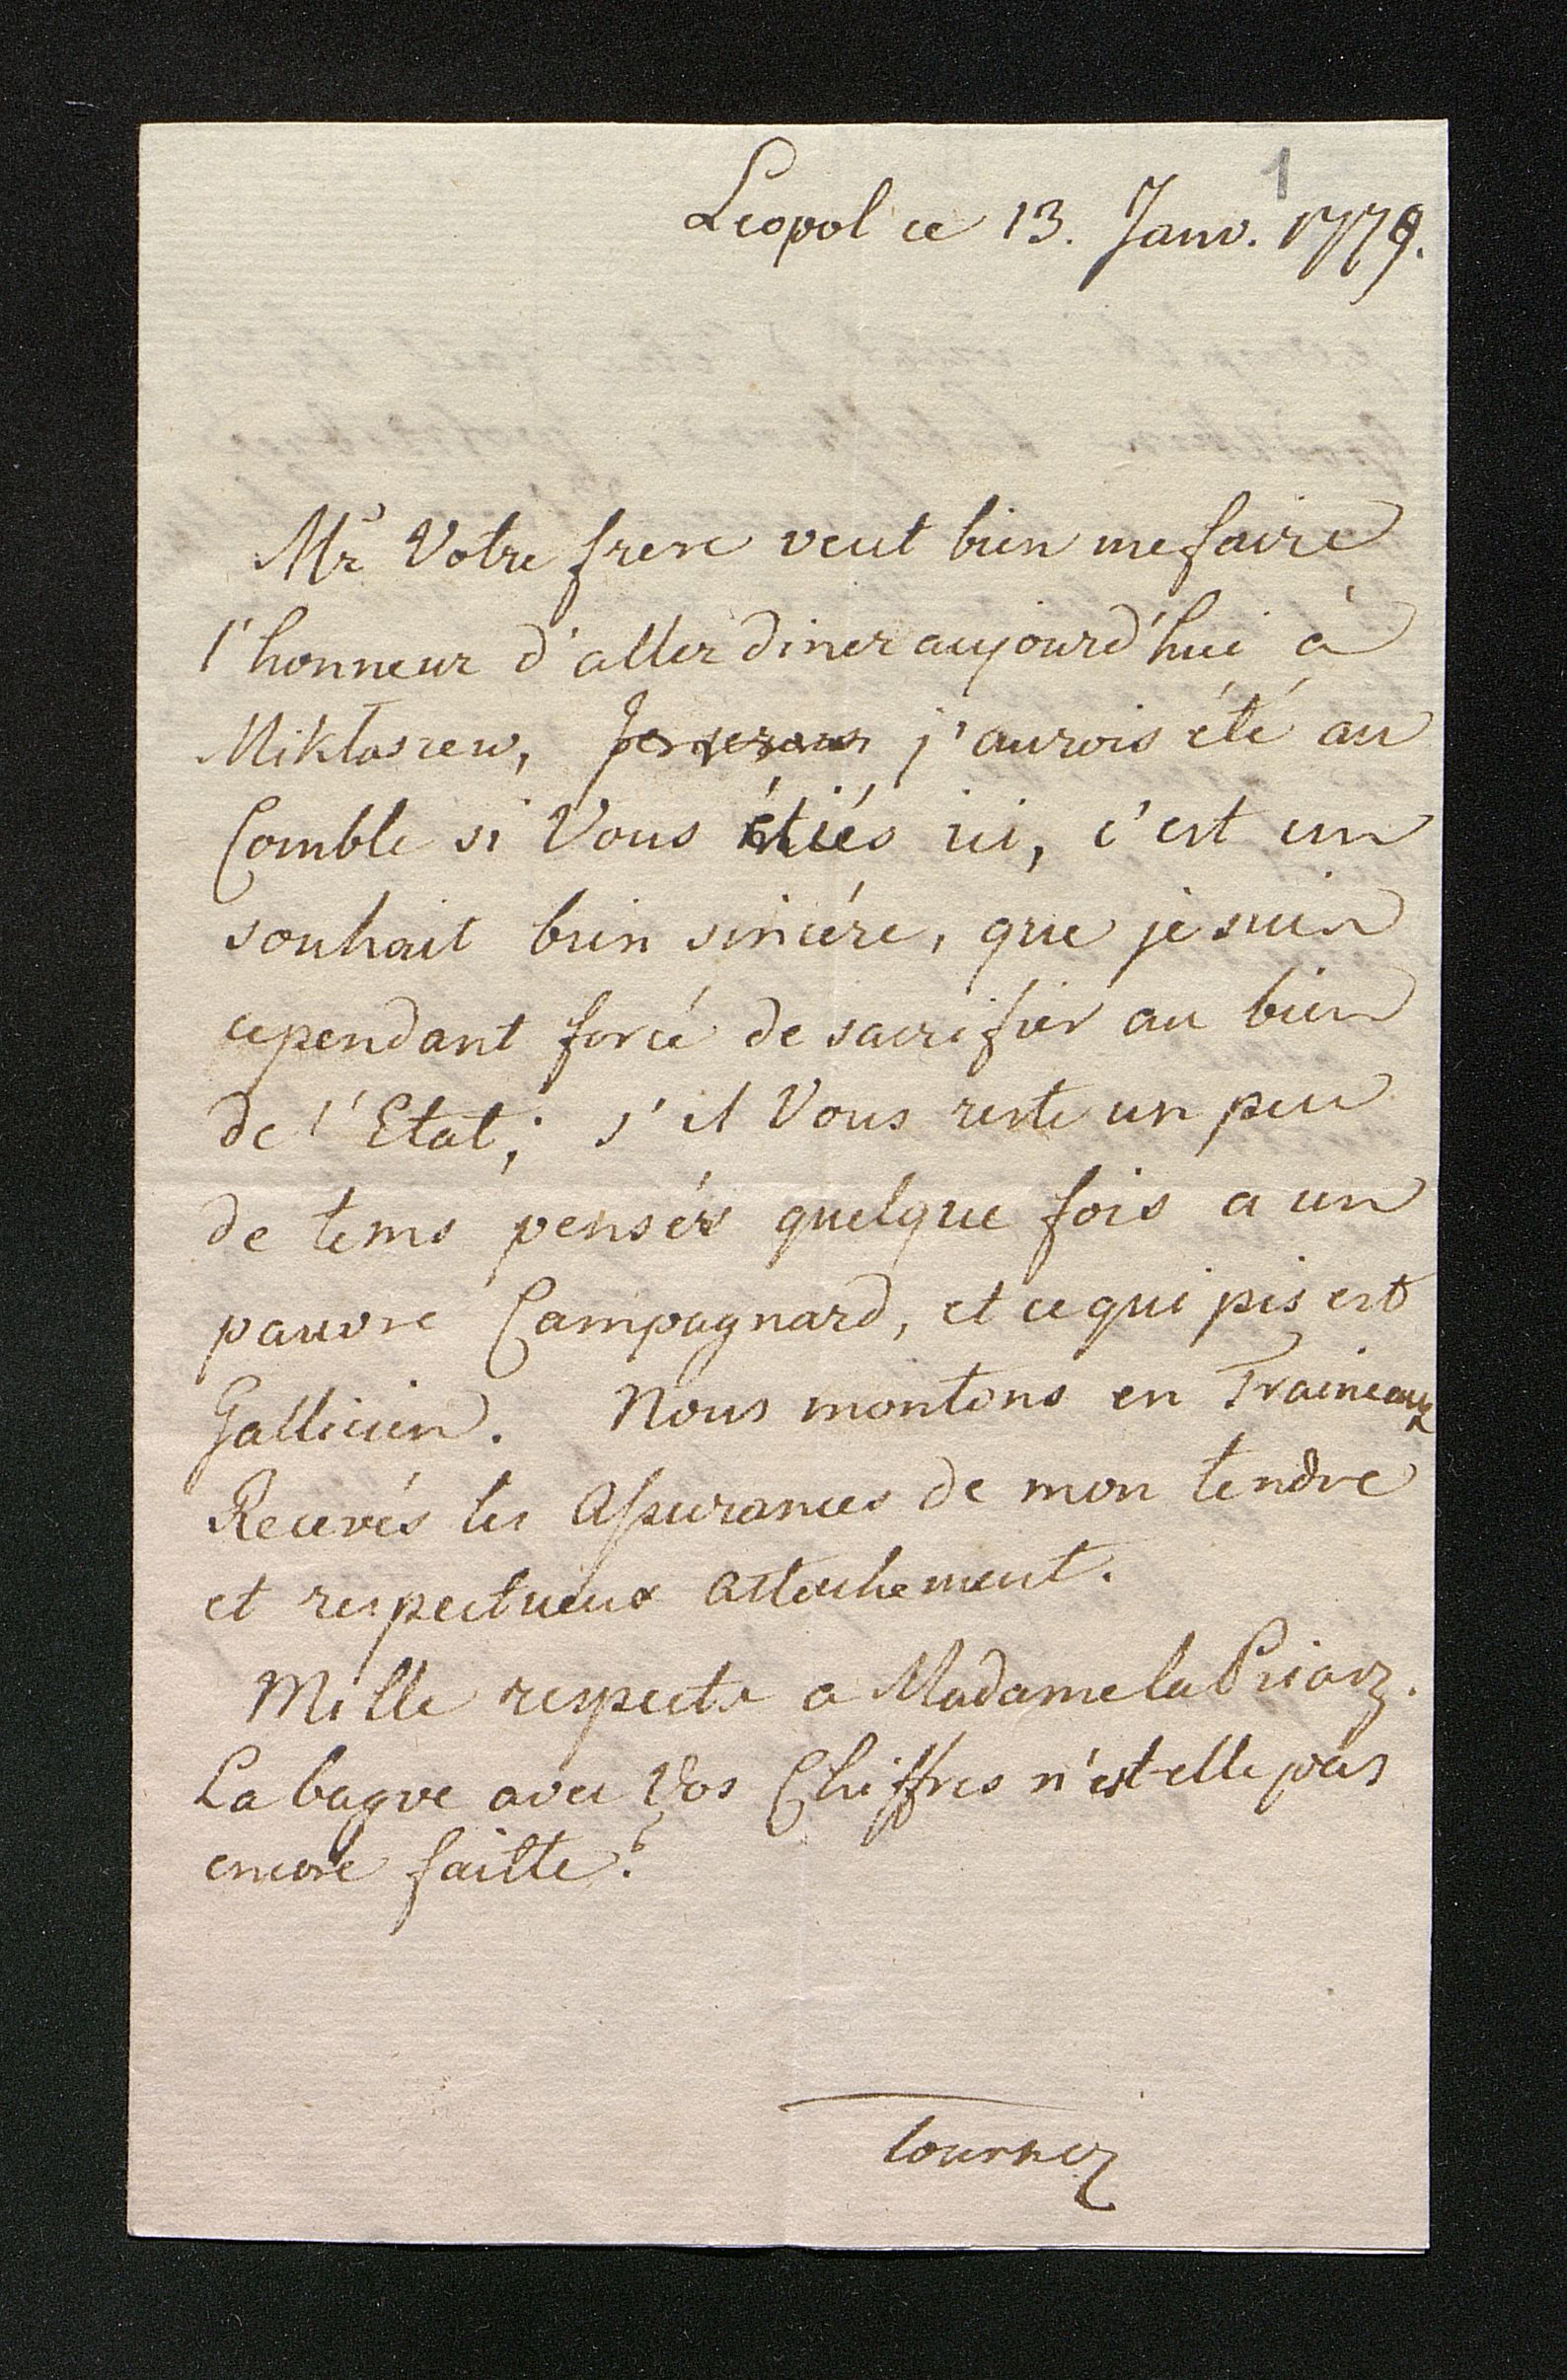 1
Léopol ce 13. Janv. 1779.
Mr. Votre frere veut bien me faire
l'honneur d'aller diner aujourd'hui à
Miklaszew, j'aurois été au
Comble si Vous étiés ici, c'est un
souhait bien sincére, que je suis
cependant forcé de sacrifier au bien
de l'Etat; s'il Vous reste un peu
de tems pensés quelque fois a un
pauvre Campagnard, et ce qui pis est
Gallicien. Nous montons en Traineaux
Recevés les Assurances de mon tendre
et respectueux attachement.
Mille respects a Madame la
La bague avec Vos Chiffres n'est-elle pas
encore faitte?
tournez